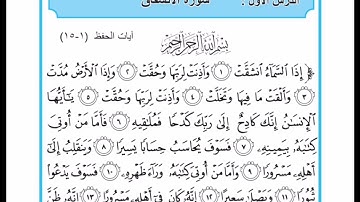 الدرس الأول : سورة الانشقاق
آيات الحفظ (١-١٥)
بسم الله الرحمن الرحيم
إِذَا ٱلسَّمَآءُ ٱنشَقَّتْ ١ وَأَذِنَتْ لِرَبِّهَا وَحُقَّتْ ٢ وَإِذَا ٱلْأَرْضُ مُدَّتْ
٣ وَأَلْقَتْ مَا فِيهَا وَتَخَلَّتْ ٤ وَأَذِنَتْ لِرَبِّهَا وَحُقَّتْ ٥ يَٰٓأَيُّهَا
ٱلْإِنسَٰنُ إِنَّكَ كَادِحٌ إِلَىٰ رَبِّكَ كَدْحًا فَمُلَٰقِيهِ ٦ فَأَمَّا مَنْ أُوتِىَ
كِتَٰبَهُۥ بِيَمِينِهِۦ ٧ فَسَوْفَ يُحَاسَبُ حِسَابًا يَسِيرًا ٨ وَيَنقَلِبُ إِلَىٰٓ
أَهْلِهِۦ مَسْرُورًا ٩ وَأَمَّا مَنْ أُوتِىَ كِتَٰبَهُۥ وَرَآءَ ظَهْرِهِۦ ١٠ فَسَوْفَ يَدْعُوا۟
ثُبُورًا ١١ وَيَصْلَىٰ سَعِيرًا ١٢ إِنَّهُۥ كَانَ فِىٓ أَهْلِهِۦ مَسْرُورًا ١٣ إِنَّهُۥ ظَنَّ